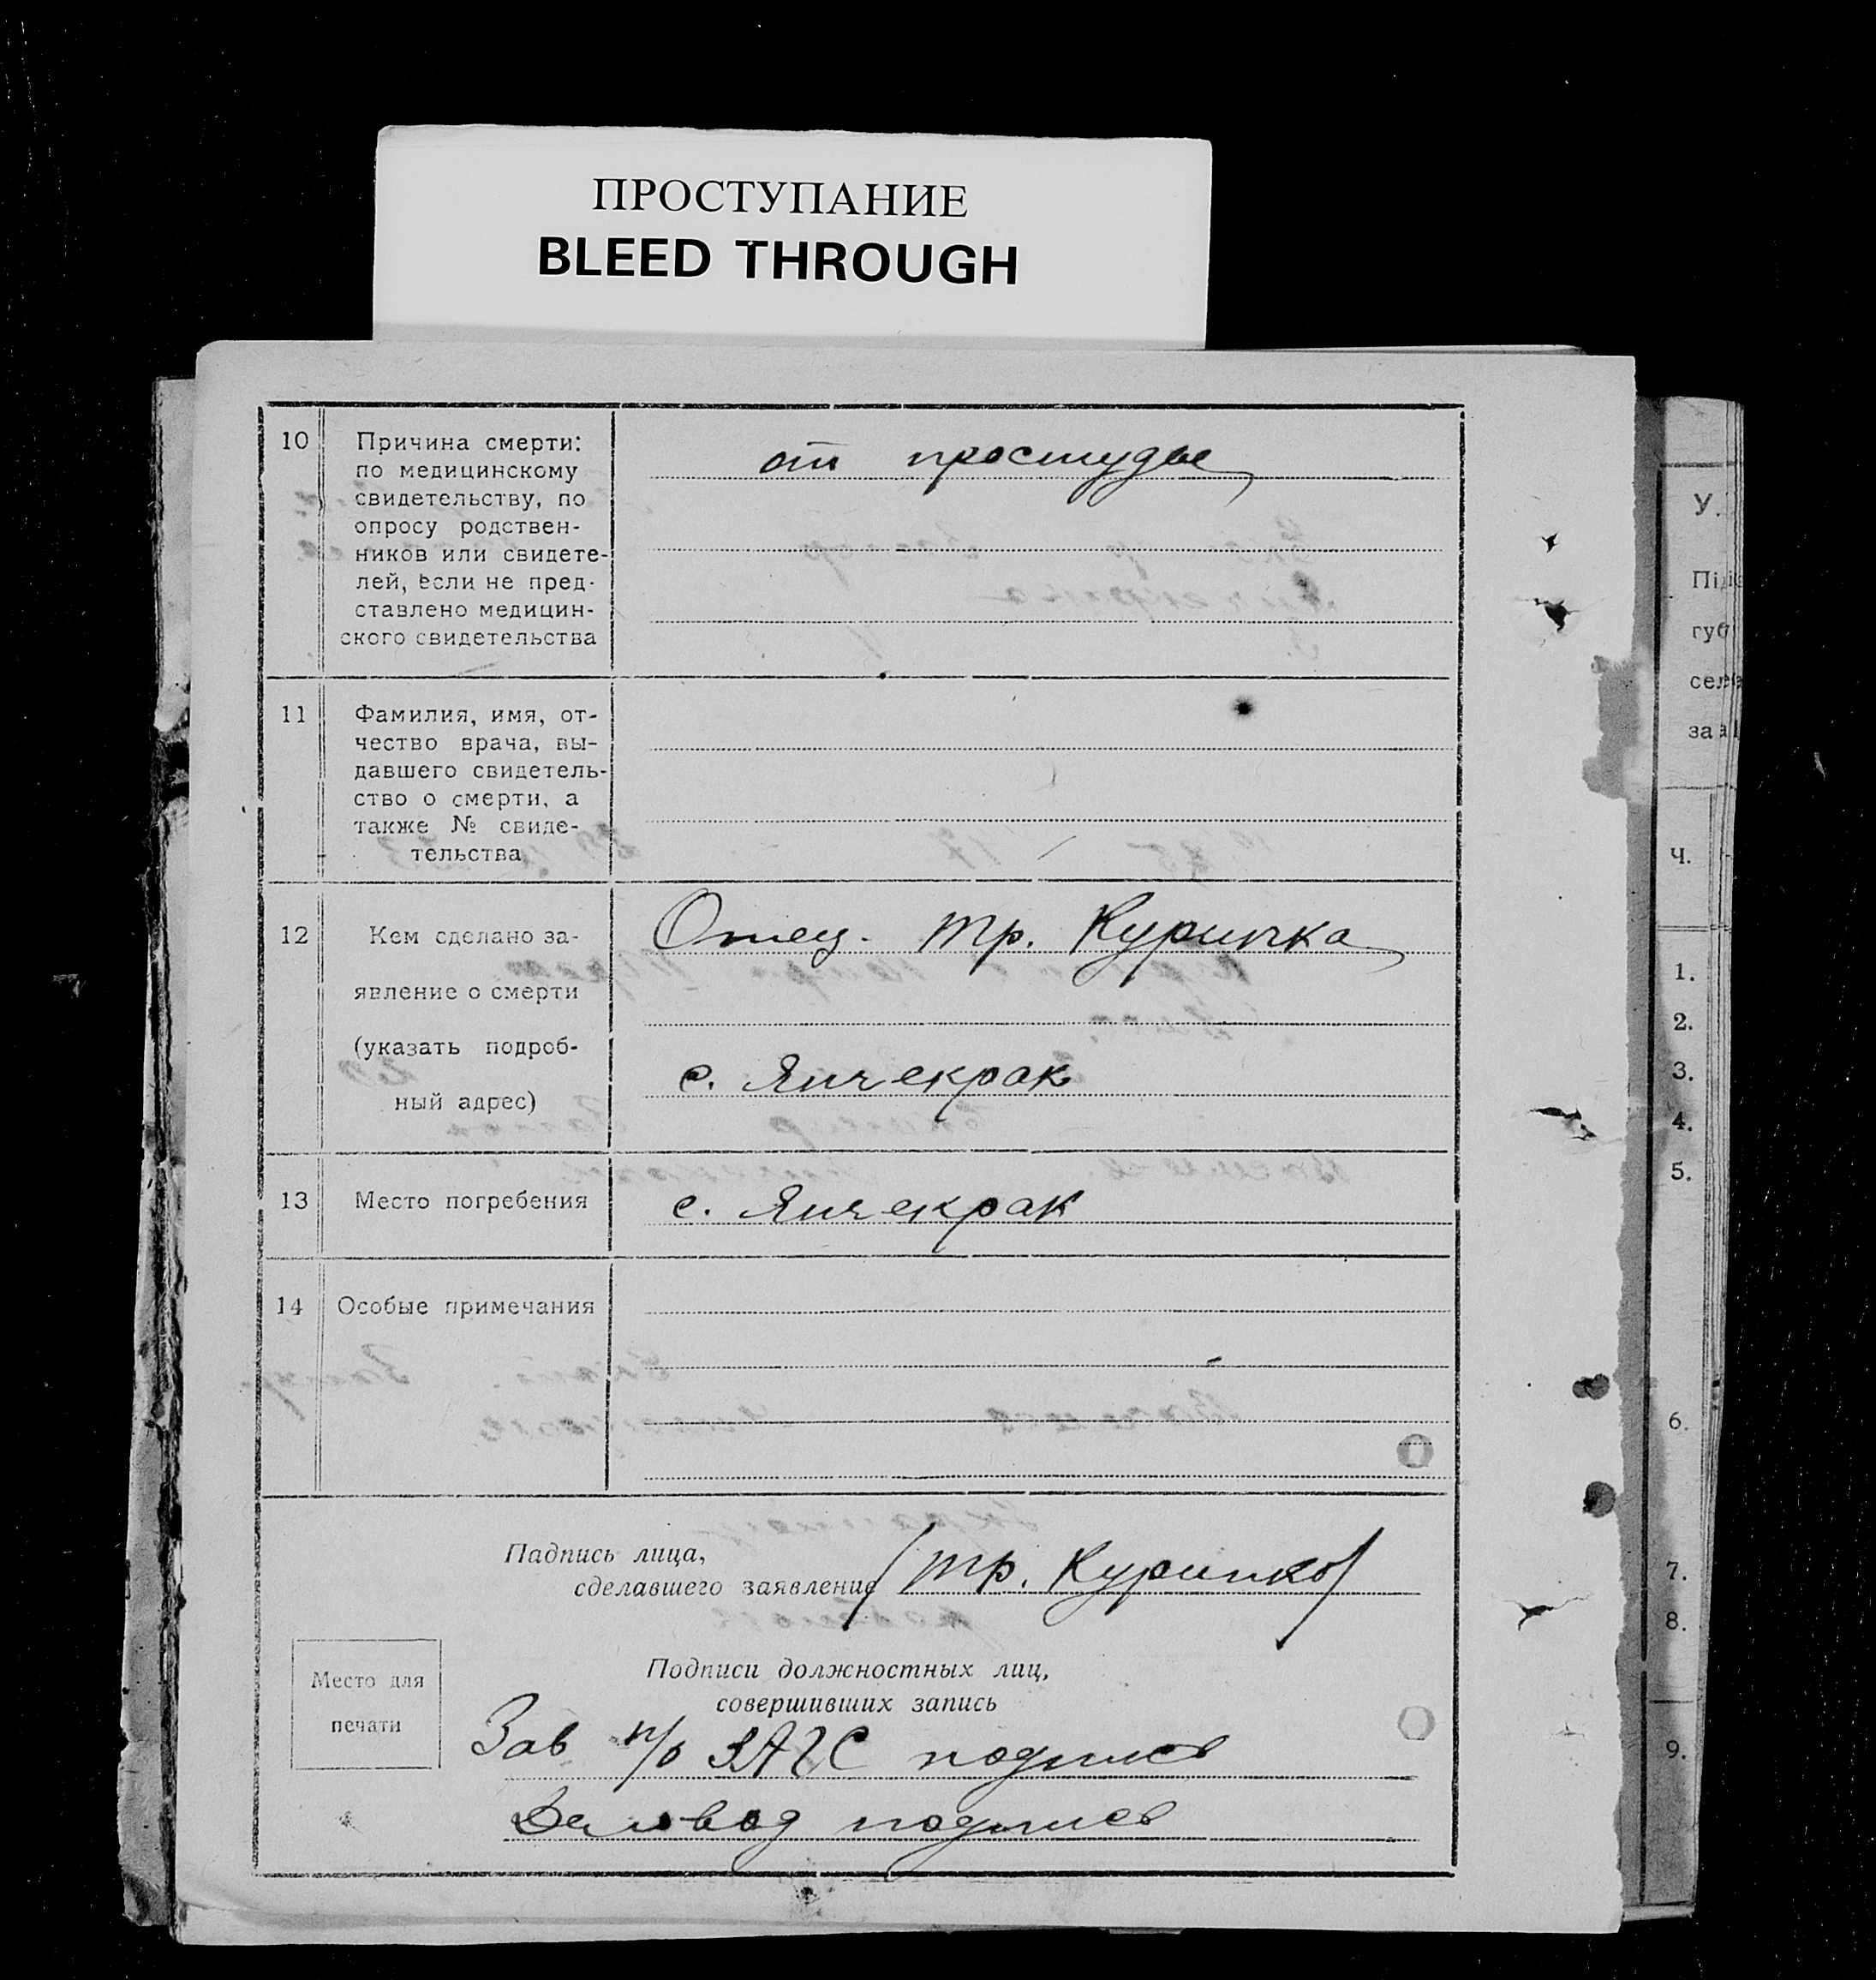 ПРОСТУПАНИЕ
BLEED THROUGH
10
Причина смерти:
по медицинскому
свидетельству, по
опросу родствен-
ников или свидете-
лей, если не пред-
ставлено медицин-
ского свидетельства
от простуды
11
Фамилия, имя, от-
чество врача, вы-
давшего свидетель-
ство о смерти, а
также № свиде-
тельства
12
Кем сделано за-
явление о смерти
(указать подроб-
ный адрес)
Отец. тр.
с. Янчекрак
13
Место погребения
с. Янчекрак
14
Особые примечания
Падпись лица,
сделавшего заявление /тр.
Место для
печати
Подписи должностных лиц,
совершивших запись
Зав ЗАГС подпись
Деловод подпись
У.
Ч.
1.
2.
3.
4.
5.
6.
7.
8.
9.